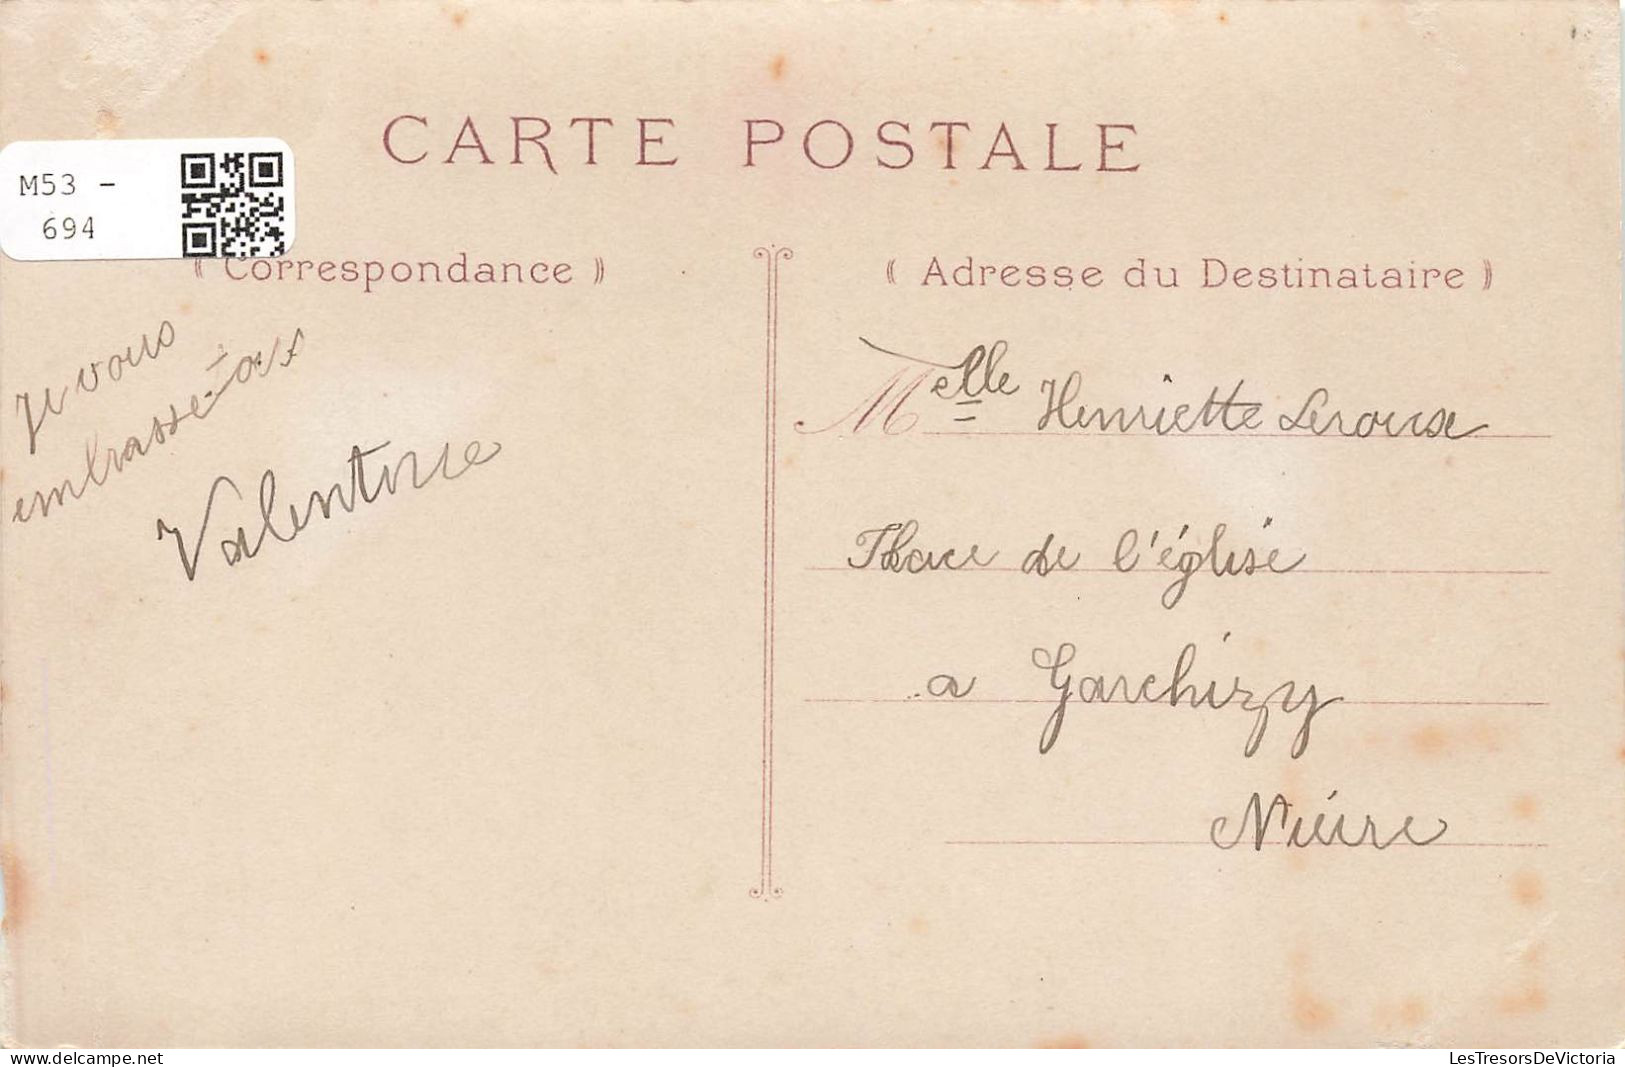 CARTE POSTALE
M53 -
694
Correspondance
Adresse du Destinataire
Je vous
embrasse
Valentine
Melle Henriette Leroux
Place de l'église
a Garchizy
Nièvre
delcampe.net
LesTresorsDeVictoria